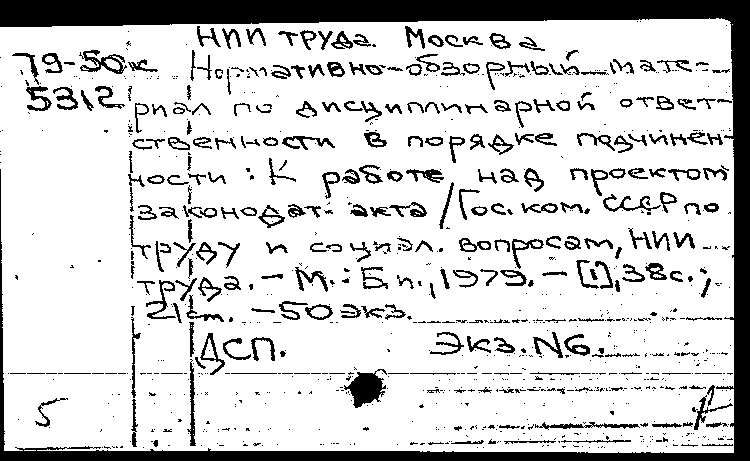 НИИ труда. Москва
79-50к Нормативно-обзорный мате-
5312 риал по дисциплинарной ответ-
ственности в порядке подчинен-
ности: К работе над проектом
законодат. акта/Гос. ком. СССР по
труду и социал. вопросам, НИИ
труда. - М.: Б.и., 1979. - [1], 38с.;
21см. - 50 экз.
ДСП. Экз. N6.
5